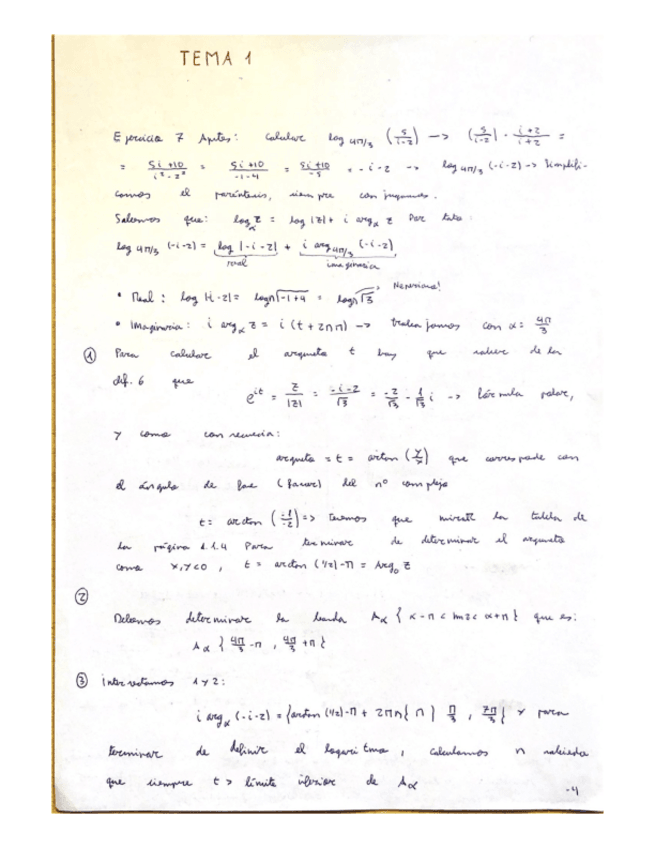 TEMA 1
Ejercicio 7 Aptes: Calcular log 4π/3 (5/(i-2)) -> (5/(i-2)) · (i+2)/(i+2) =
= (5i+10)/(i²-2²) = (5i+10)/(-1-4) = (5i+10)/(-5) = -i-2 -> log 4π/3 (-i-2) -> Simplifi-
camos el paréntesis, siempre conjugamos.
Sabemos que: log_α z = log |z| + i arg_α z Por tato
log 4π/3 (-i-2) = log |-i-2| + i arg 4π/3 (-i-2)
real imaginaria
• Real: log |-i-2| = log √(-1+4 = log √3 Neperiano!
• Imaginaria: i arg_α z = i (t + 2πn) -> trabajamos con α = 4π/3
① Para calcular el argumeto t hay que saber de la
dif. 6 que
e^{it} = z/|z| = (-i-2)/√3 = -2/√3 - 1/√3 i -> fórmula polar,
y como consecuencia:
argumeto = t = arctan (y/x) que corresponde con
el ángulo de fase (fasor) del nº complejo
t = arctan (-1/-2) => tenemos que mirar la tabla de
la página 1.1.4 Para terminar de determinar el argumeto
como x,y<0, t = arctan (1/2) - π = Arg₀ z
②
Debemos determinar la banda A_α { α-π < Imz < α+π } que es:
A_α { 4π/3 - π , 4π/3 + π }
③ intersectamos 1 y 2:
i arg_α (-i-2) = {arctan (1/2) - π + 2πn{ ∩ } π/3 , 7π/3 } y para
terminar de definir el logaritmo, calculamos n
que siempre t > límite inferior de A_α
-4